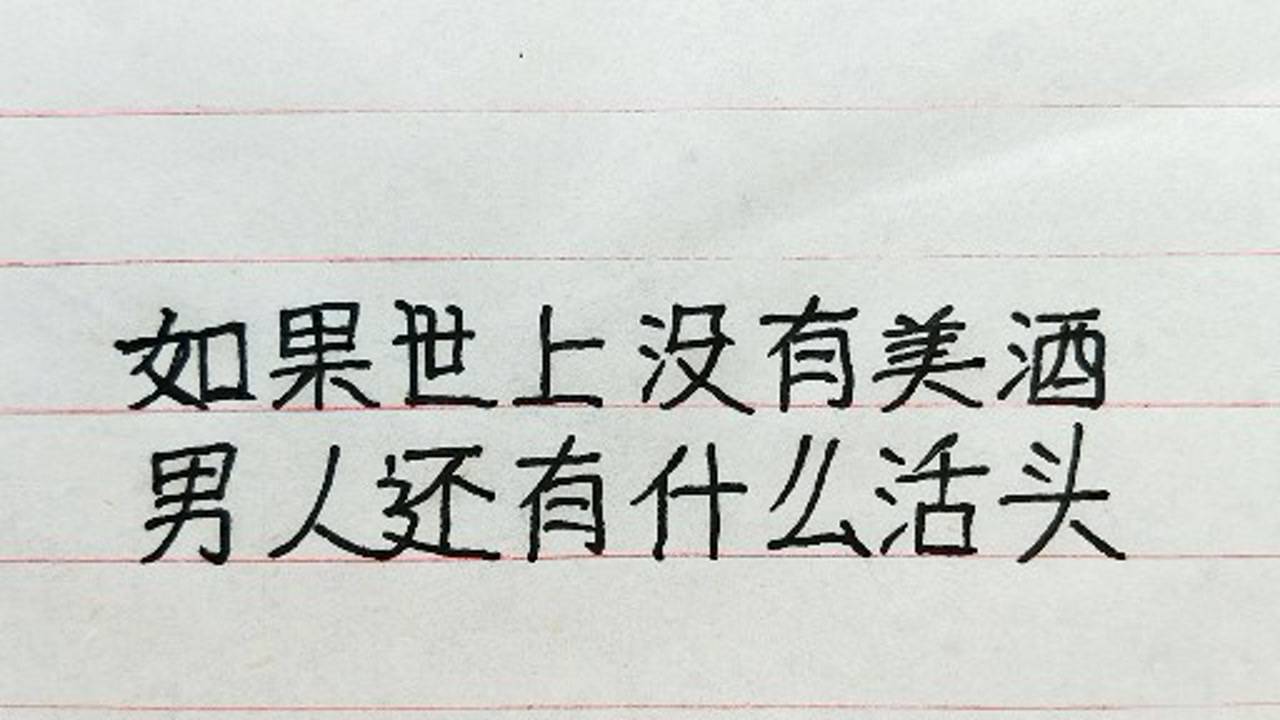 如果世上没有美酒
男人还有什么活头